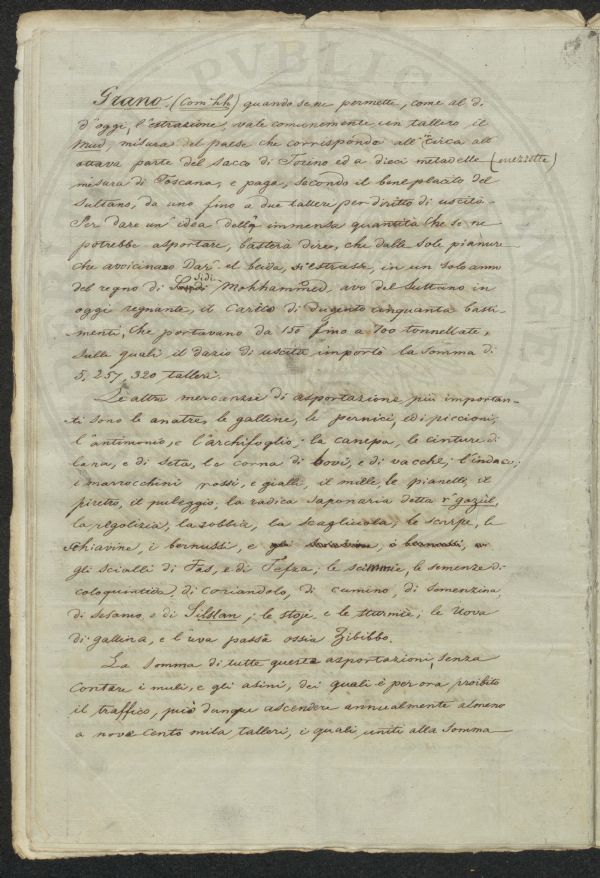 Grano (Com'hh) quando se ne permette, come al dì
d'oggi, l'estrazione, vale comunemente un tallero il
Mud, misura del paese che corrisponde all'circa all
ottava parte del sacco di Torino ed a dieci metadelle (mezzette)
misura di Toscana, e paga, secondo il beneplacito del
Sultano, da uno fino a due talleri per diritto di uscita.
Per dare un'idea della immensa quantità che se ne
potrebbe asportare, basterà dire, che dalle sole pianure
che avvicinano Dar-el-beida, si estrasse, in un solo anno
del regno di Sidi Mohhammed, avo del Sultano in
oggi regnante, il carico di dugento cinquanta basti-
menti, che portavano da 150 fino a 700 tonnellate,
sulle quali il dazio di uscita importò la somma di
5,257,320 talleri.
Le altre mercanzie di asportazione più importan-
ti sono le anatre, le galline, le pernici, ed i piccioni;
l'antimonio, e l'archifoglio; la canepa, le cinture di
lana, e di seta, le corna di bovi, e di vacche; l'indaco;
i marrocchini rossi, e gialli, il miele, le pianelle, il
piretro, il puleggio, la radica saponaria detta r'gazul,
la regolizia, la robbia, la scagliuola, le scarpe, le
schiavine, i bernussi, e
gli scialli di Fas, e di Tefza; le scimmie, le semenze di
coloquintida, di coriandolo, di cumino, di somenzina,
di sesamo, e di Silslan; le stoje, e le sturmie; le uova
di gallina, e l'uva passa ossia Zibibbo.
La somma di tutte queste asportazioni, senza
contare i muli, e gli asini, dei quali è per ora proibito
il traffico, può dunque ascendere annualmente almeno
a nove cento mila talleri, i quali, uniti alla somma